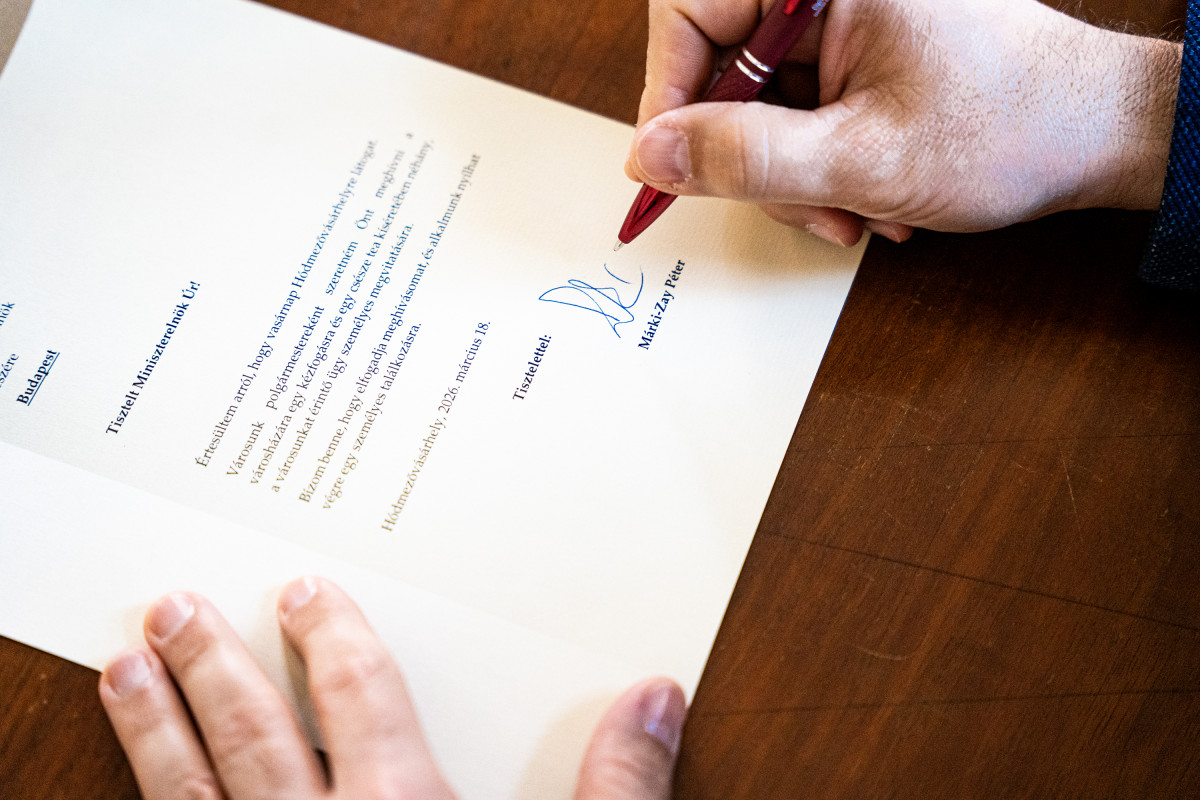 Budapest
Tisztelt Miniszterelnök Úr!
Értesültem arról, hogy vasárnap Hódmezővásárhelyre látogat.
Városunk polgármestereként szeretném Önt meghívni a
városházára egy kézfogásra és egy csésze tea kíséretében néhány,
a városunkat érintő ügy személyes megvitatására.
Bízom benne, hogy elfogadja meghívásomat, és alkalmunk nyílhat
végre egy személyes találkozásra.
Hódmezővásárhely, 2026. március 18.
Tisztelettel:
Márki-Zay Péter